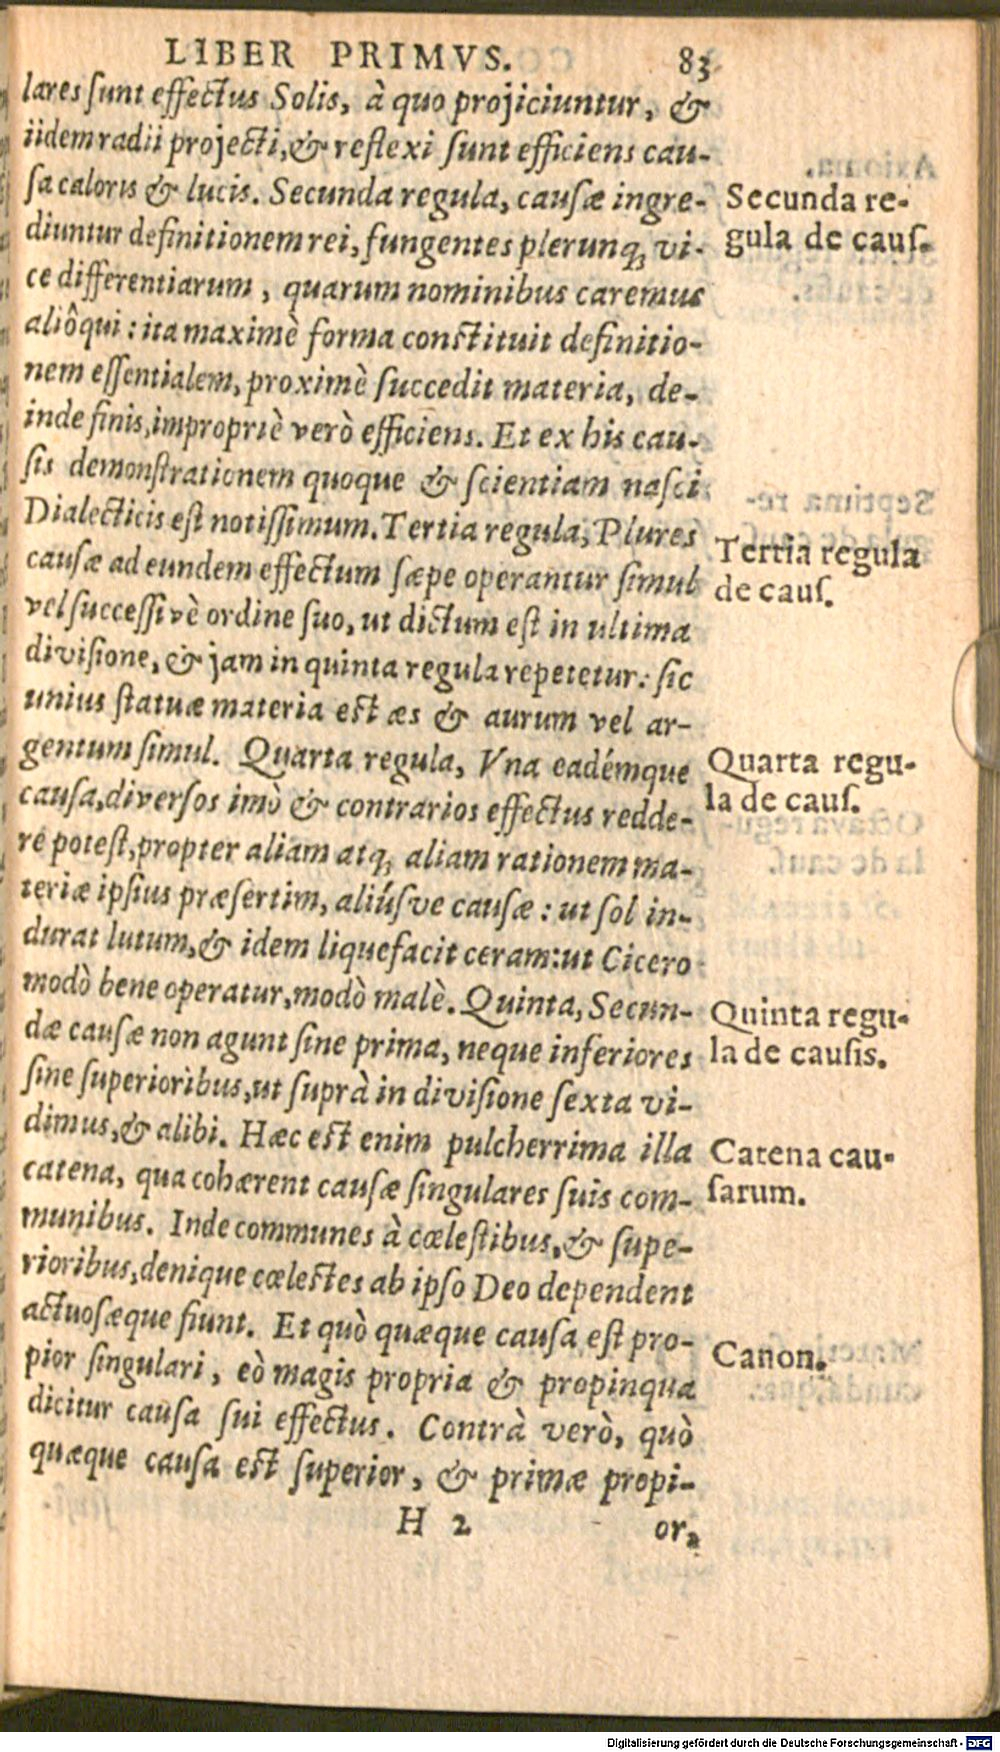 LIBER PRIMVS. 83
lares ſunt effectus Solis, à quo projiciuntur, &
iidem radii projecti, & reflexi ſunt efficiens cau-
ſa caloris & lucis. Secunda regula, cauſæ ingre-
diuntur definitionem rei, fungentes plerunq; vi-
ce differentiarum, quarum nominibus caremus
aliôqui: ita maximè forma conſtituit definitio-
nem eſſentialem, proximè ſuccedit materia, de-
inde finis, impropriè verò efficiens. Et ex his cau-
ſis demonſtrationem quoque & ſcientiam naſci
Dialecticis eſt notiſſimum. Tertia regula, Plures
cauſæ ad eundem effectum ſæpe operantur ſimul
vel ſucceſſivè ordine ſuo, ut dictum eſt in ultima
diviſione, & jam in quinta regula repetetur: ſic
unius ſtatuæ materia eſt æs & aurum vel ar-
gentum ſimul. Quarta regula, Vna eadémque
cauſa, diverſos imò & contrarios effectus redde-
re poteſt, propter aliam atq; aliam rationem ma-
teriæ ipſius præſertim, aliúſve cauſæ: ut ſol in-
durat lutum, & idem liquefacit ceram: ut Cicero
modò bene operatur, modò malè. Quinta, Secun-
dæ cauſæ non agunt ſine prima, neque inferiores
ſine ſuperioribus, ut ſuprà in diviſione ſexta vi-
dimus, & alibi. Hæc eſt enim pulcherrima illa
catena, qua cohærent cauſæ ſingulares ſuis com-
munibus. Inde communes à cœleſtibus, & ſupe-
rioribus, denique cœleſtes ab ipſo Deo dependent
actuoſæque fiunt. Et quò quæque cauſa eſt pro-
pior ſingulari, eò magis propria & propinqua
dicitur cauſa ſui effectus. Contrà verò, quò
quæque cauſa eſt ſuperior, & primæ propi-
H 2 or,
Secunda re-
gula de cauſ.
Tertia regula
de cauſ.
Quarta regu-
la de cauſ.
Quinta regu-
la de cauſis.
Catena cau-
ſarum.
Canon.
Digitalisierung gefördert durch die Deutsche Forschungsgemeinschaft - DFG